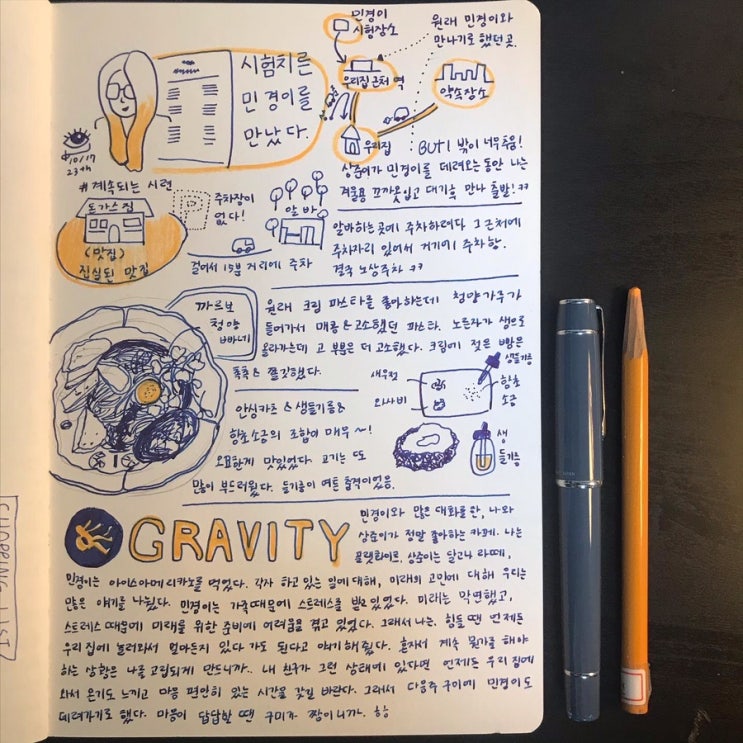 민경이
시험장소
원래 민경이와
만나기로 했던 곳.
시험치른
민경이를
만났다.
우리집 근처 역
약속장소
우리집
BUT! 밖이 너무 추움!
상준이가 민경이를 데려오는동안 나는
겨울용 꼬까옷입고 대기후 만나 출발! ㅋㅋ
10/17
23th
#계속되는 시련
돈가스집
(맛집)
진실된 맛집
주차장이
없다!
P
알바
걸어서 15분 거리에 주차
알바하는곳에 주차하려다 그 근처에
주차자리 있어서 거기에 주차함.
결국 노상주차 ㅋㅋ
까르보
청양
빠네
원래 크림 파스타를 좋아하는데 청양가루가
들어가서 매콤&고소했던 파스타. 노른자가 생으로
올라가는데 고 부분은 더 고소했다. 크림에 젖은 빵은
촉촉& 짭잘했다.
새우젓
와사비
생들기름
함초
소금
안심카츠 & 생들기름&
함초소금의 조합이 매우 ~!
오묘한게 맛있었다. 고기는 또
많이 부드러웠다. 들기름이 여튼 충격이었음.
생
들기름
GRAVITY
민경이와 많은 대화를 한, 나와
상준이가 정말 좋아하는 카페. 나는
플랫화이트, 상준이는 달고나 라떼,
민경이는 아이스아메리카노를 먹었다. 각자 하고 있는 일에 대해, 미래의 고민에 대해 우리는
많은 얘기를 나눴다. 민경이는 가족때문에 스트레스를 받고 있었다. 미래는 막연했고,
스트레스 때문에 미래를 위한 준비에 어려움을 겪고 있었다. 그래서 나는, 힘들 땐 언제든
우리집에 놀러와서 얼마든지 있다 가도 된다고 얘기해줬다. 혼자서 계속 뭔가를 해야
하는 상황은 나를 고립되게 만드니까.. 내 친구가 그런 상태에 있다면 언제든 우리 집에
와서 온기도 느끼고 마음 편안히 있는 시간을 갖길 바란다. 그래서 다음주 구미에 민경이도
데려가기로 했다. 마음이 답답할 땐 구미가 짱이니까. ㅎㅎ
SHOPPING LIST